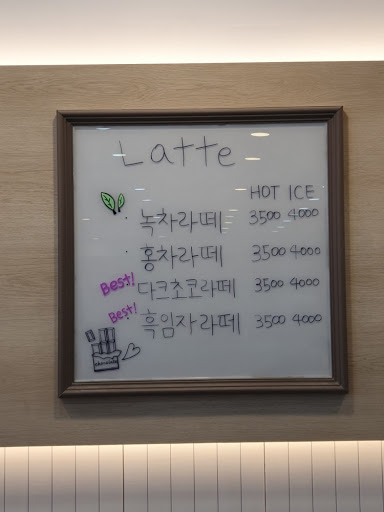 Latte
HOT ICE
녹차라떼 3500 4000
홍차라떼 3500 4000
Best! 다크초코라떼 3500 4000
Best! 흑임자라떼 3500 4000